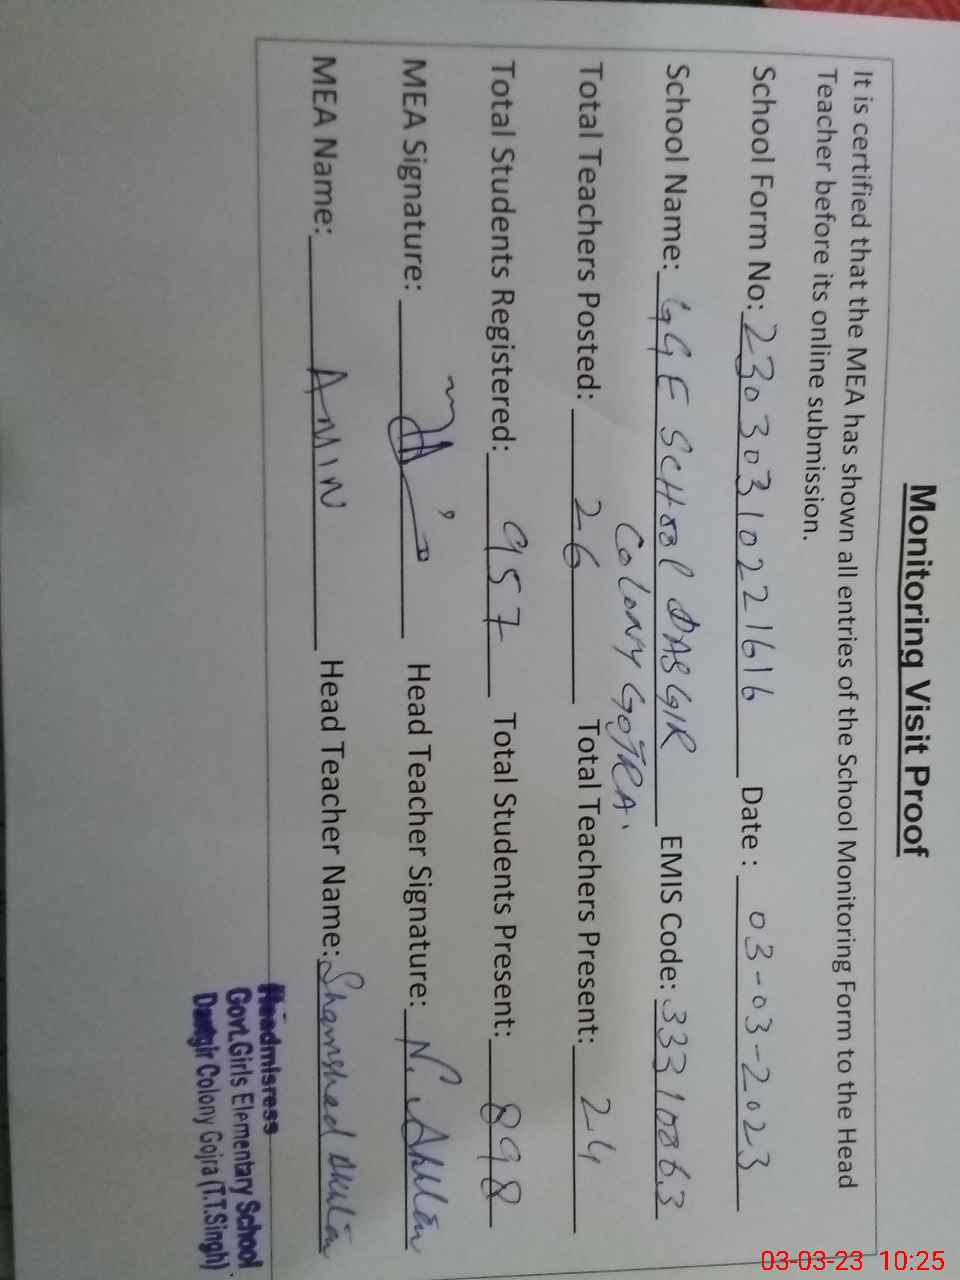 Monitoring Visit Proof
It is certified that the MEA has shown all entries of the School Monitoring Form to the Head
Teacher before its online submission.
School Form No: 23030310221616 Date : 03-03-2023
School Name: GGE SCHOOL DASGIR EMIS Code: 33310863
COLONY GOJRA.
Total Teachers Posted: 26 Total Teachers Present: 24
Total Students Registered: 957 Total Students Present: 898
MEA Signature: Head Teacher Signature: N. Akhtar
MEA Name: AMIN Head Teacher Name: Shamshad Akhtar
Headmisress
Govt. Girls Elementary School
Dastgir Colony Gojra (T.T.Singh)
03-03-23 10:25